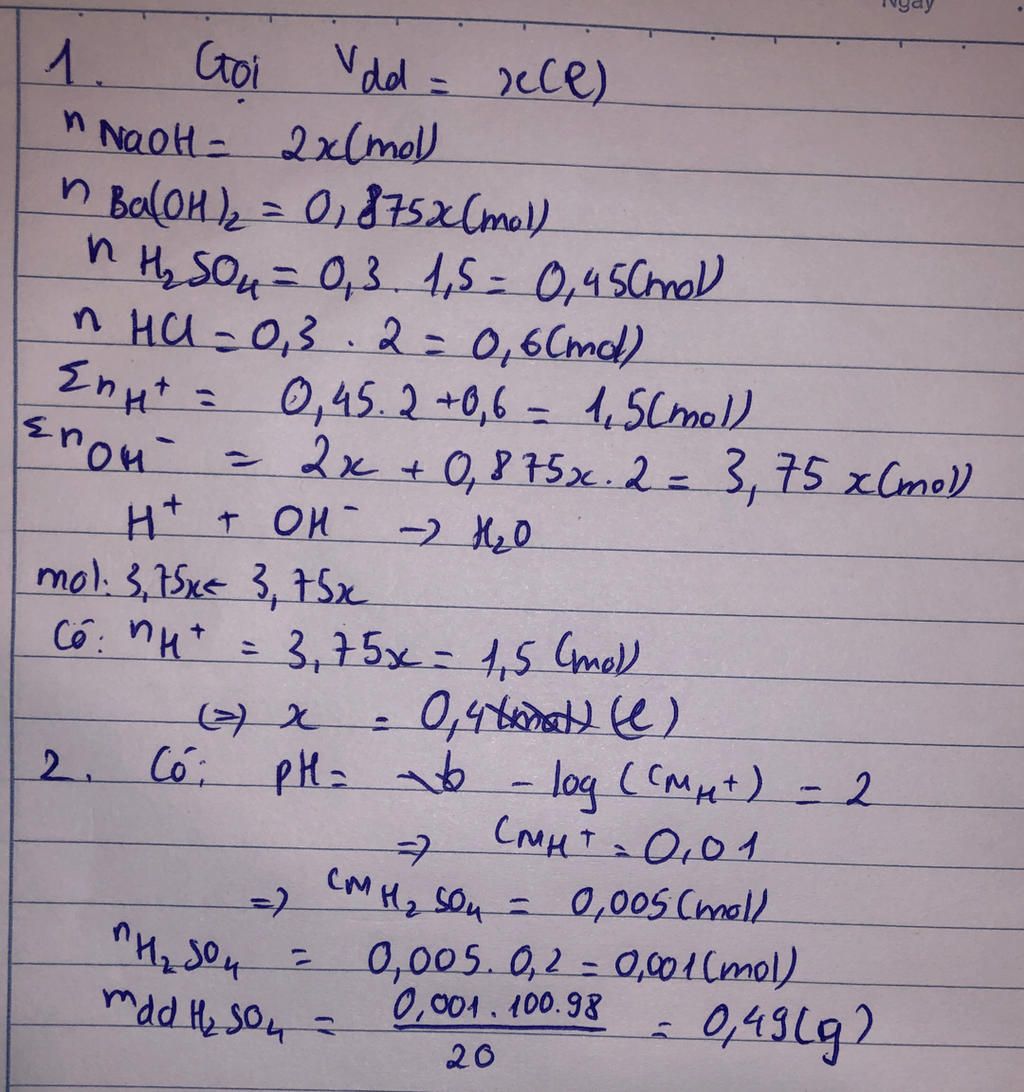 Ngày
1. Gọi Vdd = x(l)
nNaOH = 2x(mol)
nBa(OH)2 = 0,875x(mol)
nH2SO4 = 0,3 . 1,5 = 0,45(mol)
nHCl = 0,3 . 2 = 0,6(mol)
ΣnH+ = 0,45.2 +0,6 = 1,5(mol)
ΣnOH- = 2x + 0,875x.2 = 3,75 x(mol)
H+ + OH- → H2O
mol: 3,75x← 3,75x
Có: nH+ = 3,75x = 1,5 (mol)
(=) x = 0,4 (l)
2. Có: pH = - log (CMH+) = 2
=> CMH+ = 0,01
=> CMH2SO4 = 0,005(mol)
nH2SO4 = 0,005.0,2 = 0,001(mol)
mddH2SO4 = 0,001.100.98 / 20 = 0,49(g)